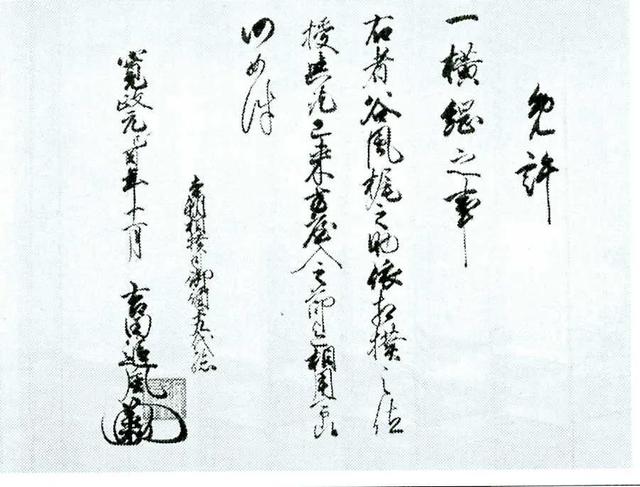 免許
一横綱之事
右者谷風梶之助依相撲之位
授與 已来方屋入之節 相用可
仍如件
本朝相撲司御行司十九代
寛政元己酉年十一月 吉田追風